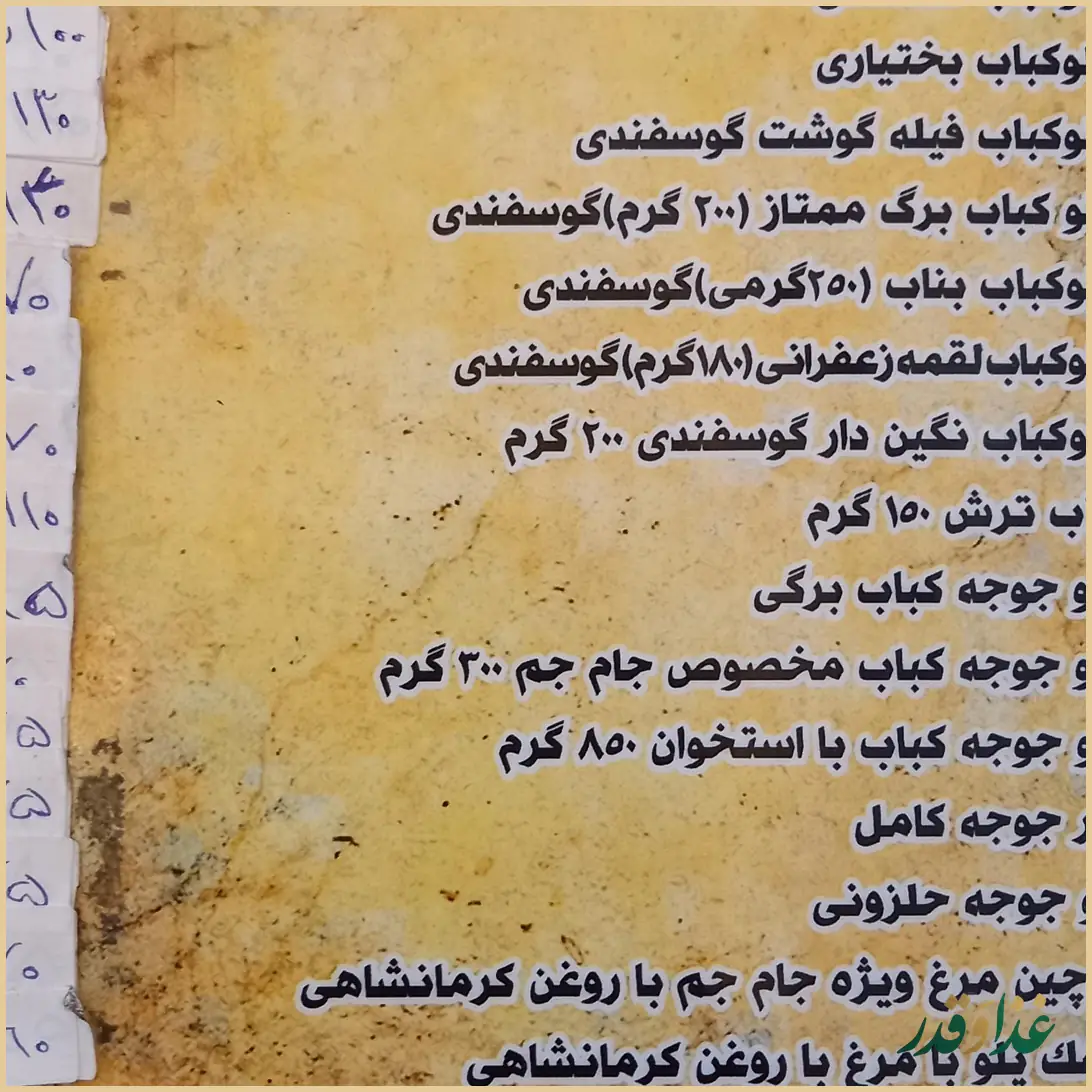 وکباب بختیاری
وکباب فیله گوشت گوسفندی
و کباب برگ ممتاز (۲۰۰ گرم)گوسفندی
وکباب بناب (۲۵۰گرمی)گوسفندی
وکباب لقمه زعفرانی(۱۸۰گرم)گوسفندی
وکباب نگین دار گوسفندی ۲۰۰ گرم
ب ترش ۱۵۰ گرم
و جوجه کباب برگی
و جوجه کباب مخصوص جام جم ۳۰۰ گرم
و جوجه کباب با استخوان ۸۵۰ گرم
ر جوجه کامل
و جوجه حلزونی
چین مرغ ویژه جام جم با روغن کرمانشاهی
لک پلو با مرغ با روغن کرمانشاهی
۱۰۰
۱۳۰
۱۴۰
۷۰
۷۰
۱۱۰
غذا و قدر